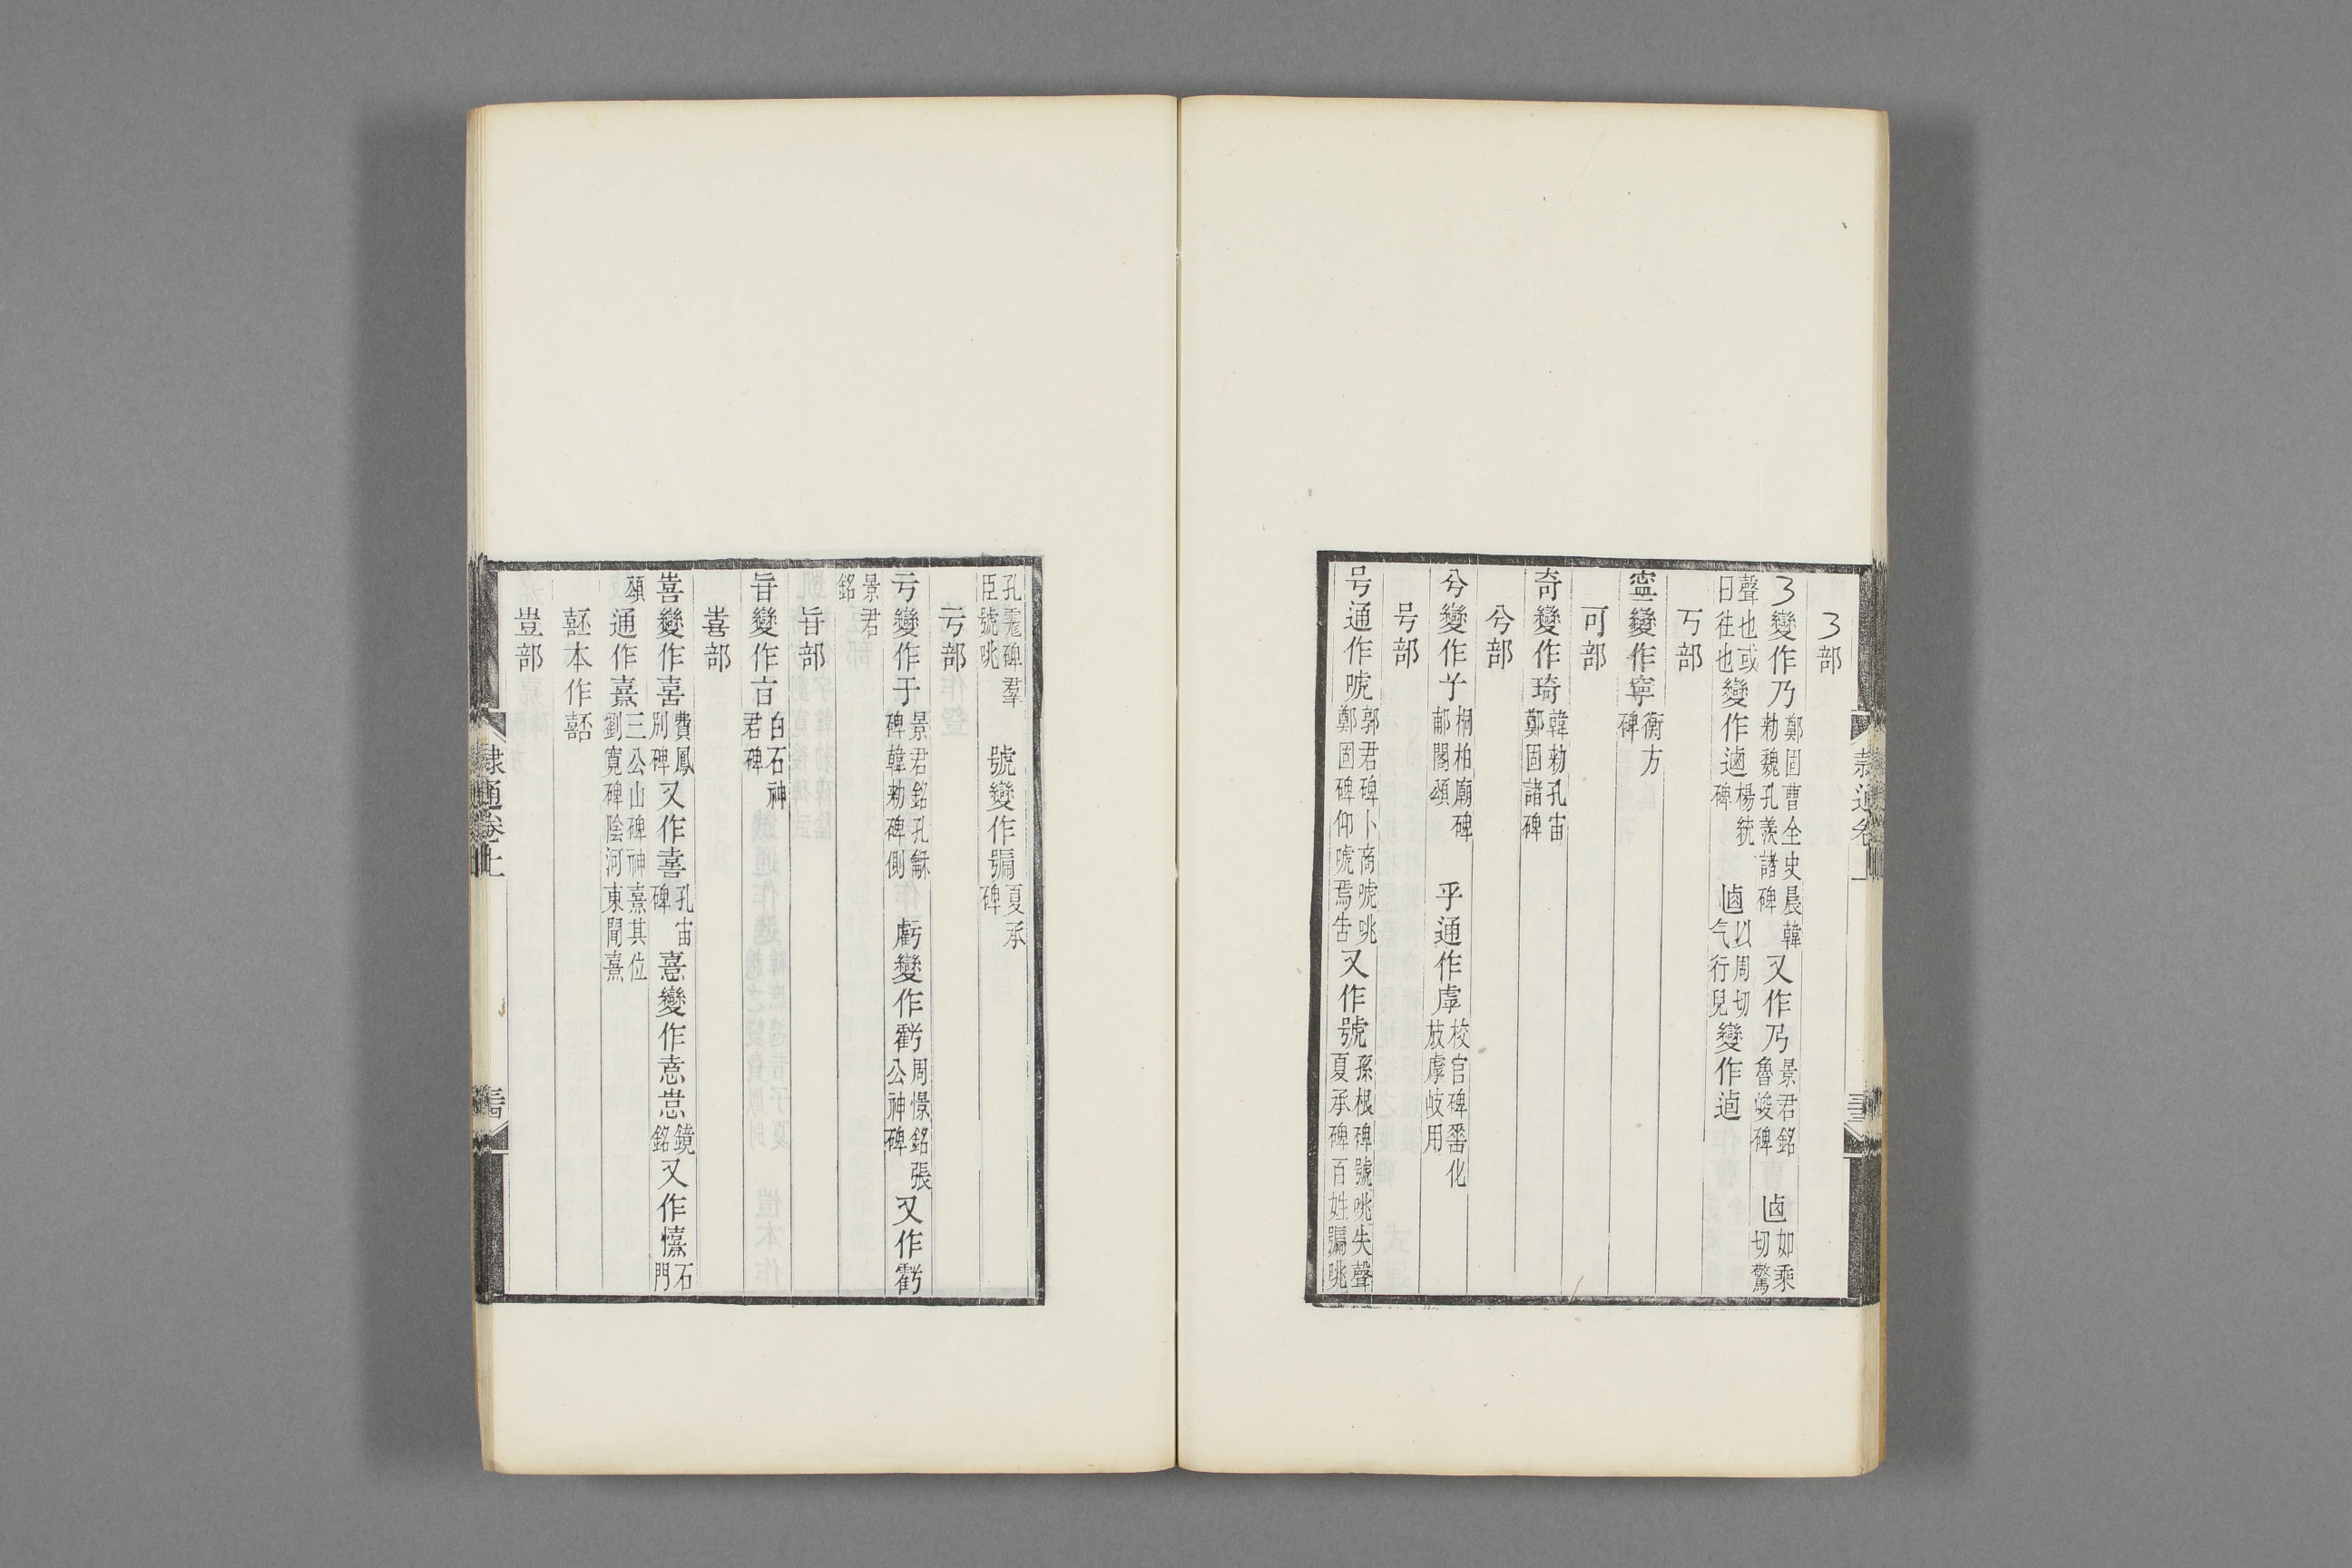 隸通卷上
𠄎部
𠄎變作乃鄭固曹全史晨韓勑魏孔羨諸碑又作乃景君銘魯峻碑 𠧟如乘切驚
聲也或曰往也變作逎楊統碑 𠧟以周切气行皃變作逌
丂部
寍變作寧衡方碑
可部
奇變作琦韓勑孔宙鄭固諸碑
兮部
兮變作兮桐柏廟碑郙閣頌 乎通作虖校官碑䍐化㱿虖岐用
号部
号通作唬郭君碑卜商唬咷鄭固碑仰唬焉告又作號孫根碑號咷失聲夏承碑百姓號咷
孔龗碑羣臣號咷 號變作號夏承碑
亏部
亏變作于景君銘孔龢碑韓勑碑側 虧變作虧周憬銘張公神碑又作虧
景君銘
旨部
旨變作㫖白石神君碑
喜部
喜變作喜費鳳別碑又作喜孔宙碑 憙變作憙鏡銘又作僖石門
頌通作熹三公山碑神熹其位劉寬碑陰河東聞熹
嚭本作嚭
豈部
隸通卷上